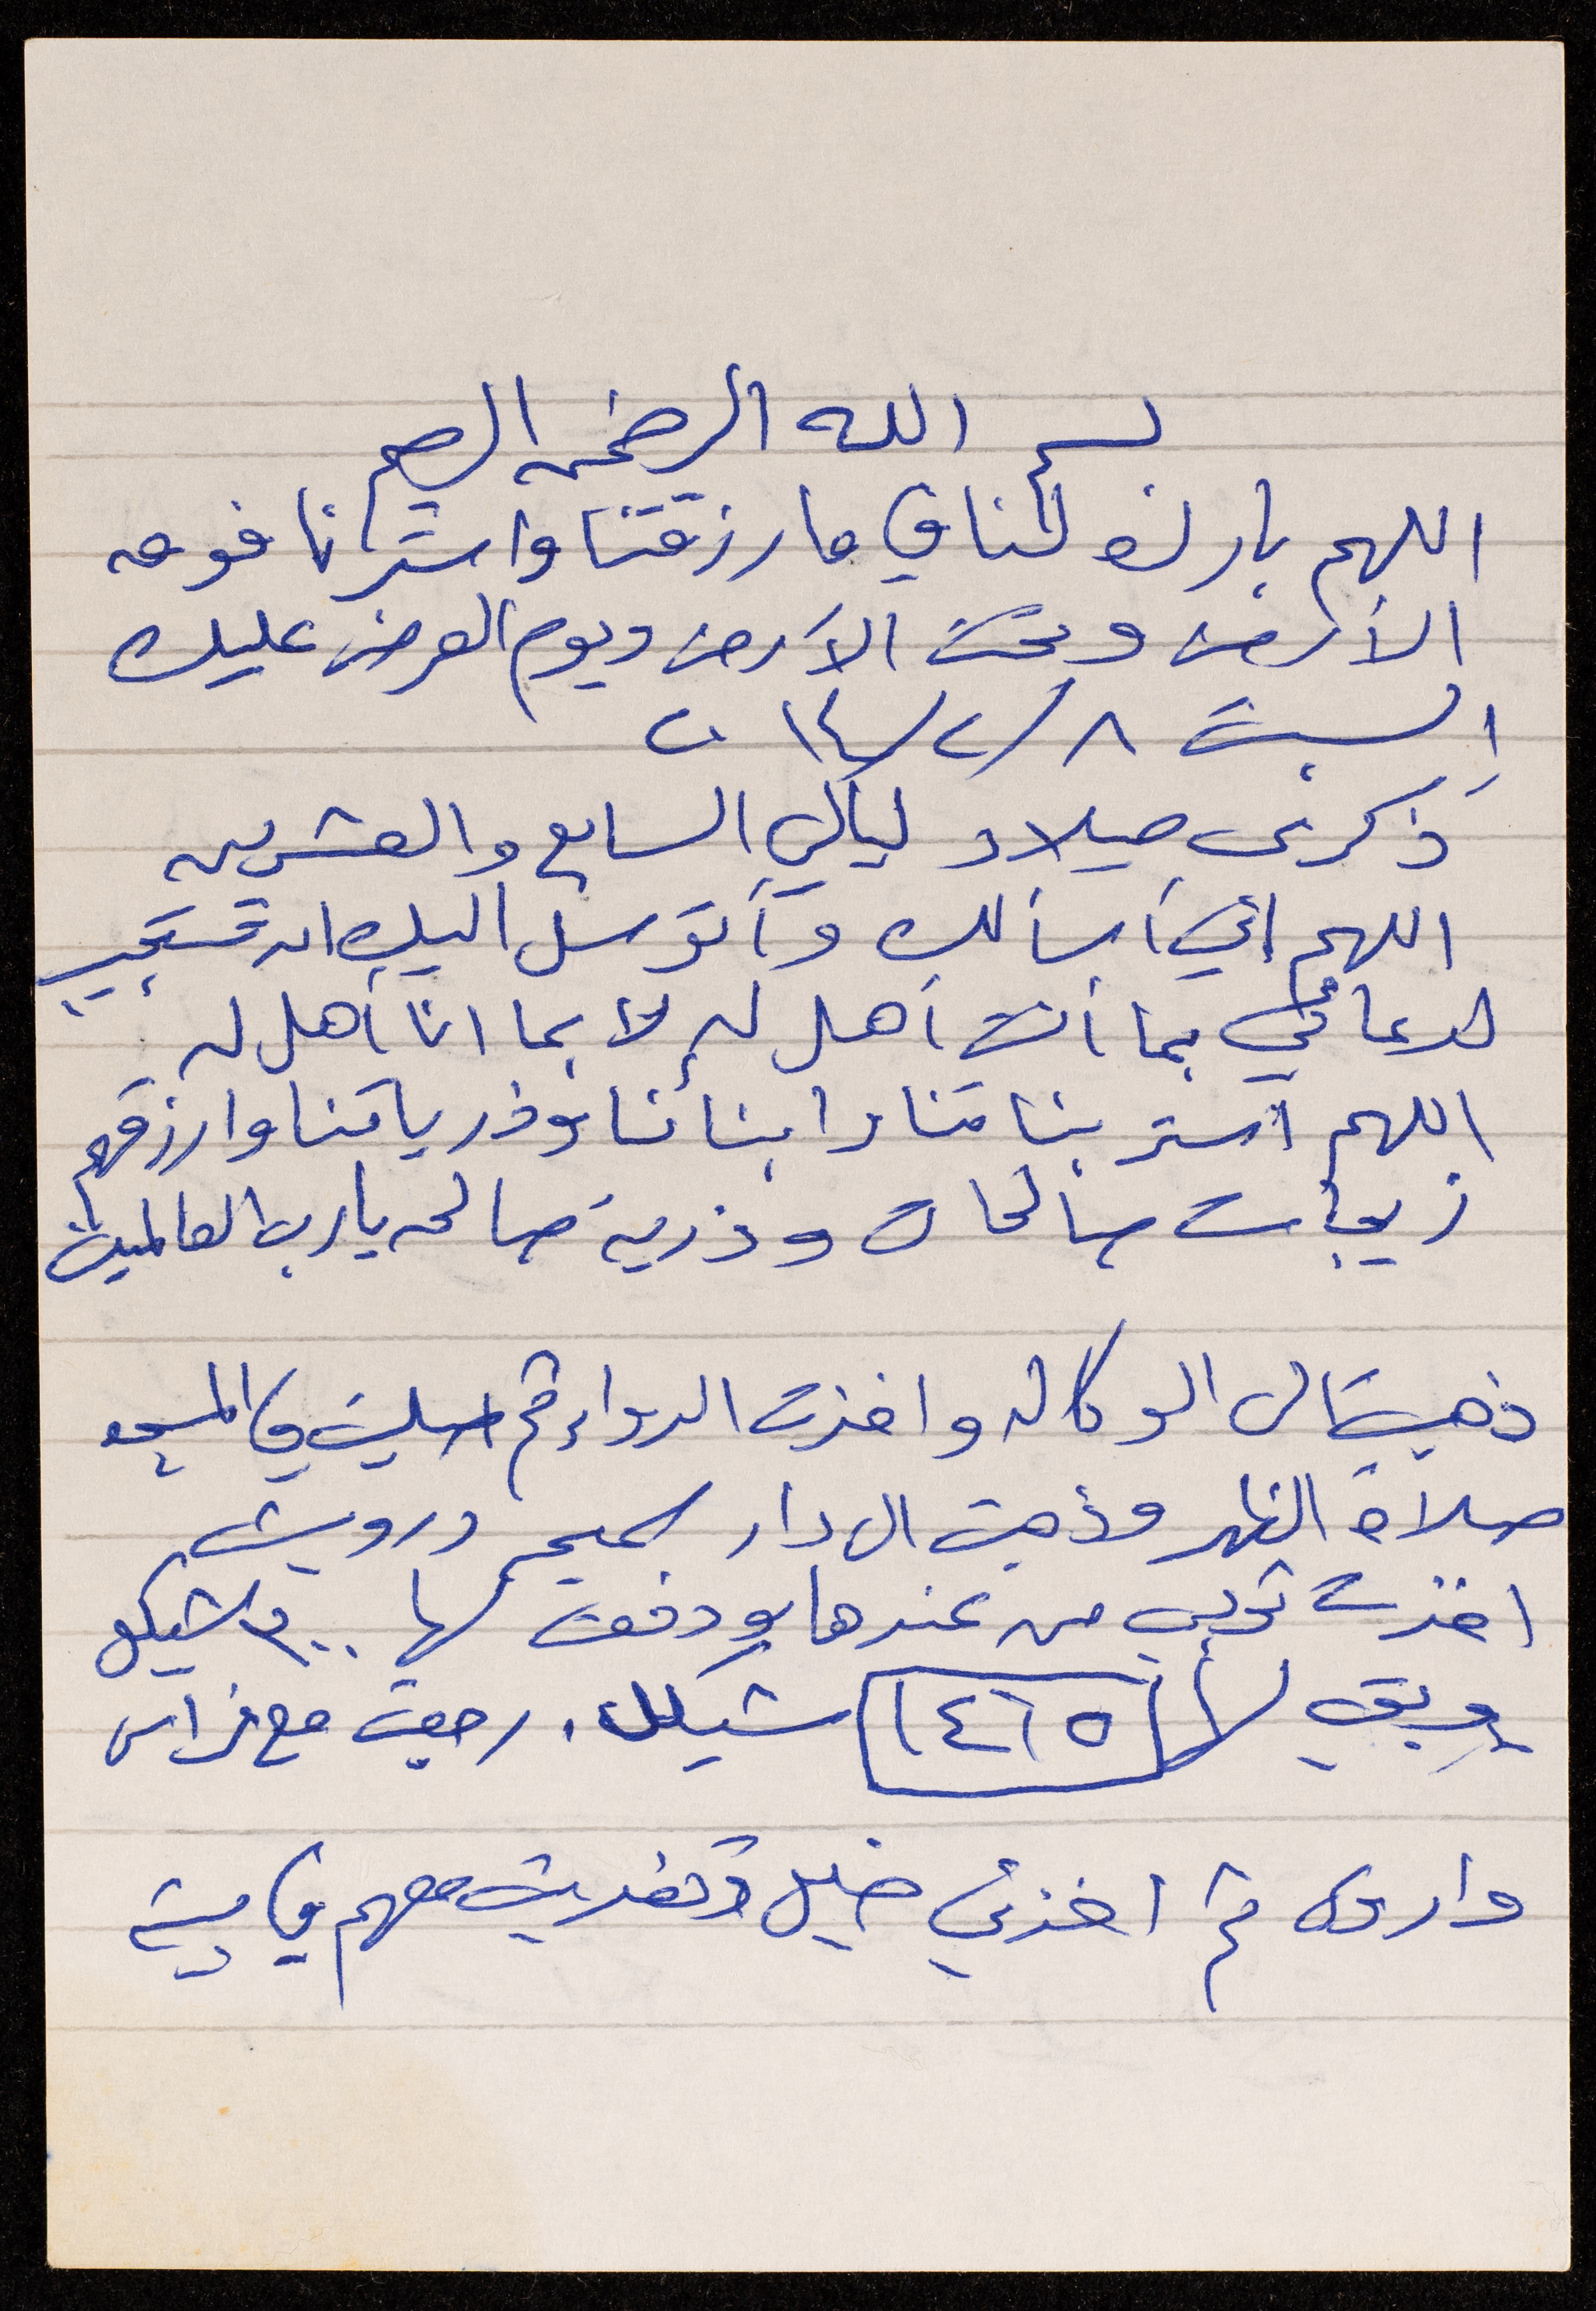 بسم الله الرحمن الرحيم
اللهم بارك لنا في ما رزقتنا واسترنا فوق
الأرض وتحت الأرض ويوم العرض عليك
السبت ٨/٢/٢٠١٤
ذكرى ميلاد ليالي السابع والعشرين
اللهم إني أسألك وأتوسل اليك ان تستجيب
لدعائي بما أنت أهل له لا بما انا أهل له
اللهم استر بناتنا وابنائنا وذرياتنا وارزقهم
زيجات صالحات وذرية صالحه يارب العالمين
ذهبت الى الوكاله واخذت الدواء ثم صليت في المسجد
صلاة الظهر وذهبت الى دار سميح درويش
اخذت ثوبي من عندها ودفعت لها ٣٠٠ شيكل
وبقي لها ١٤٦٥ شيكل. رجعت مع فراس
واروى ثم اخذني خليل وتغديت معهم في بيته